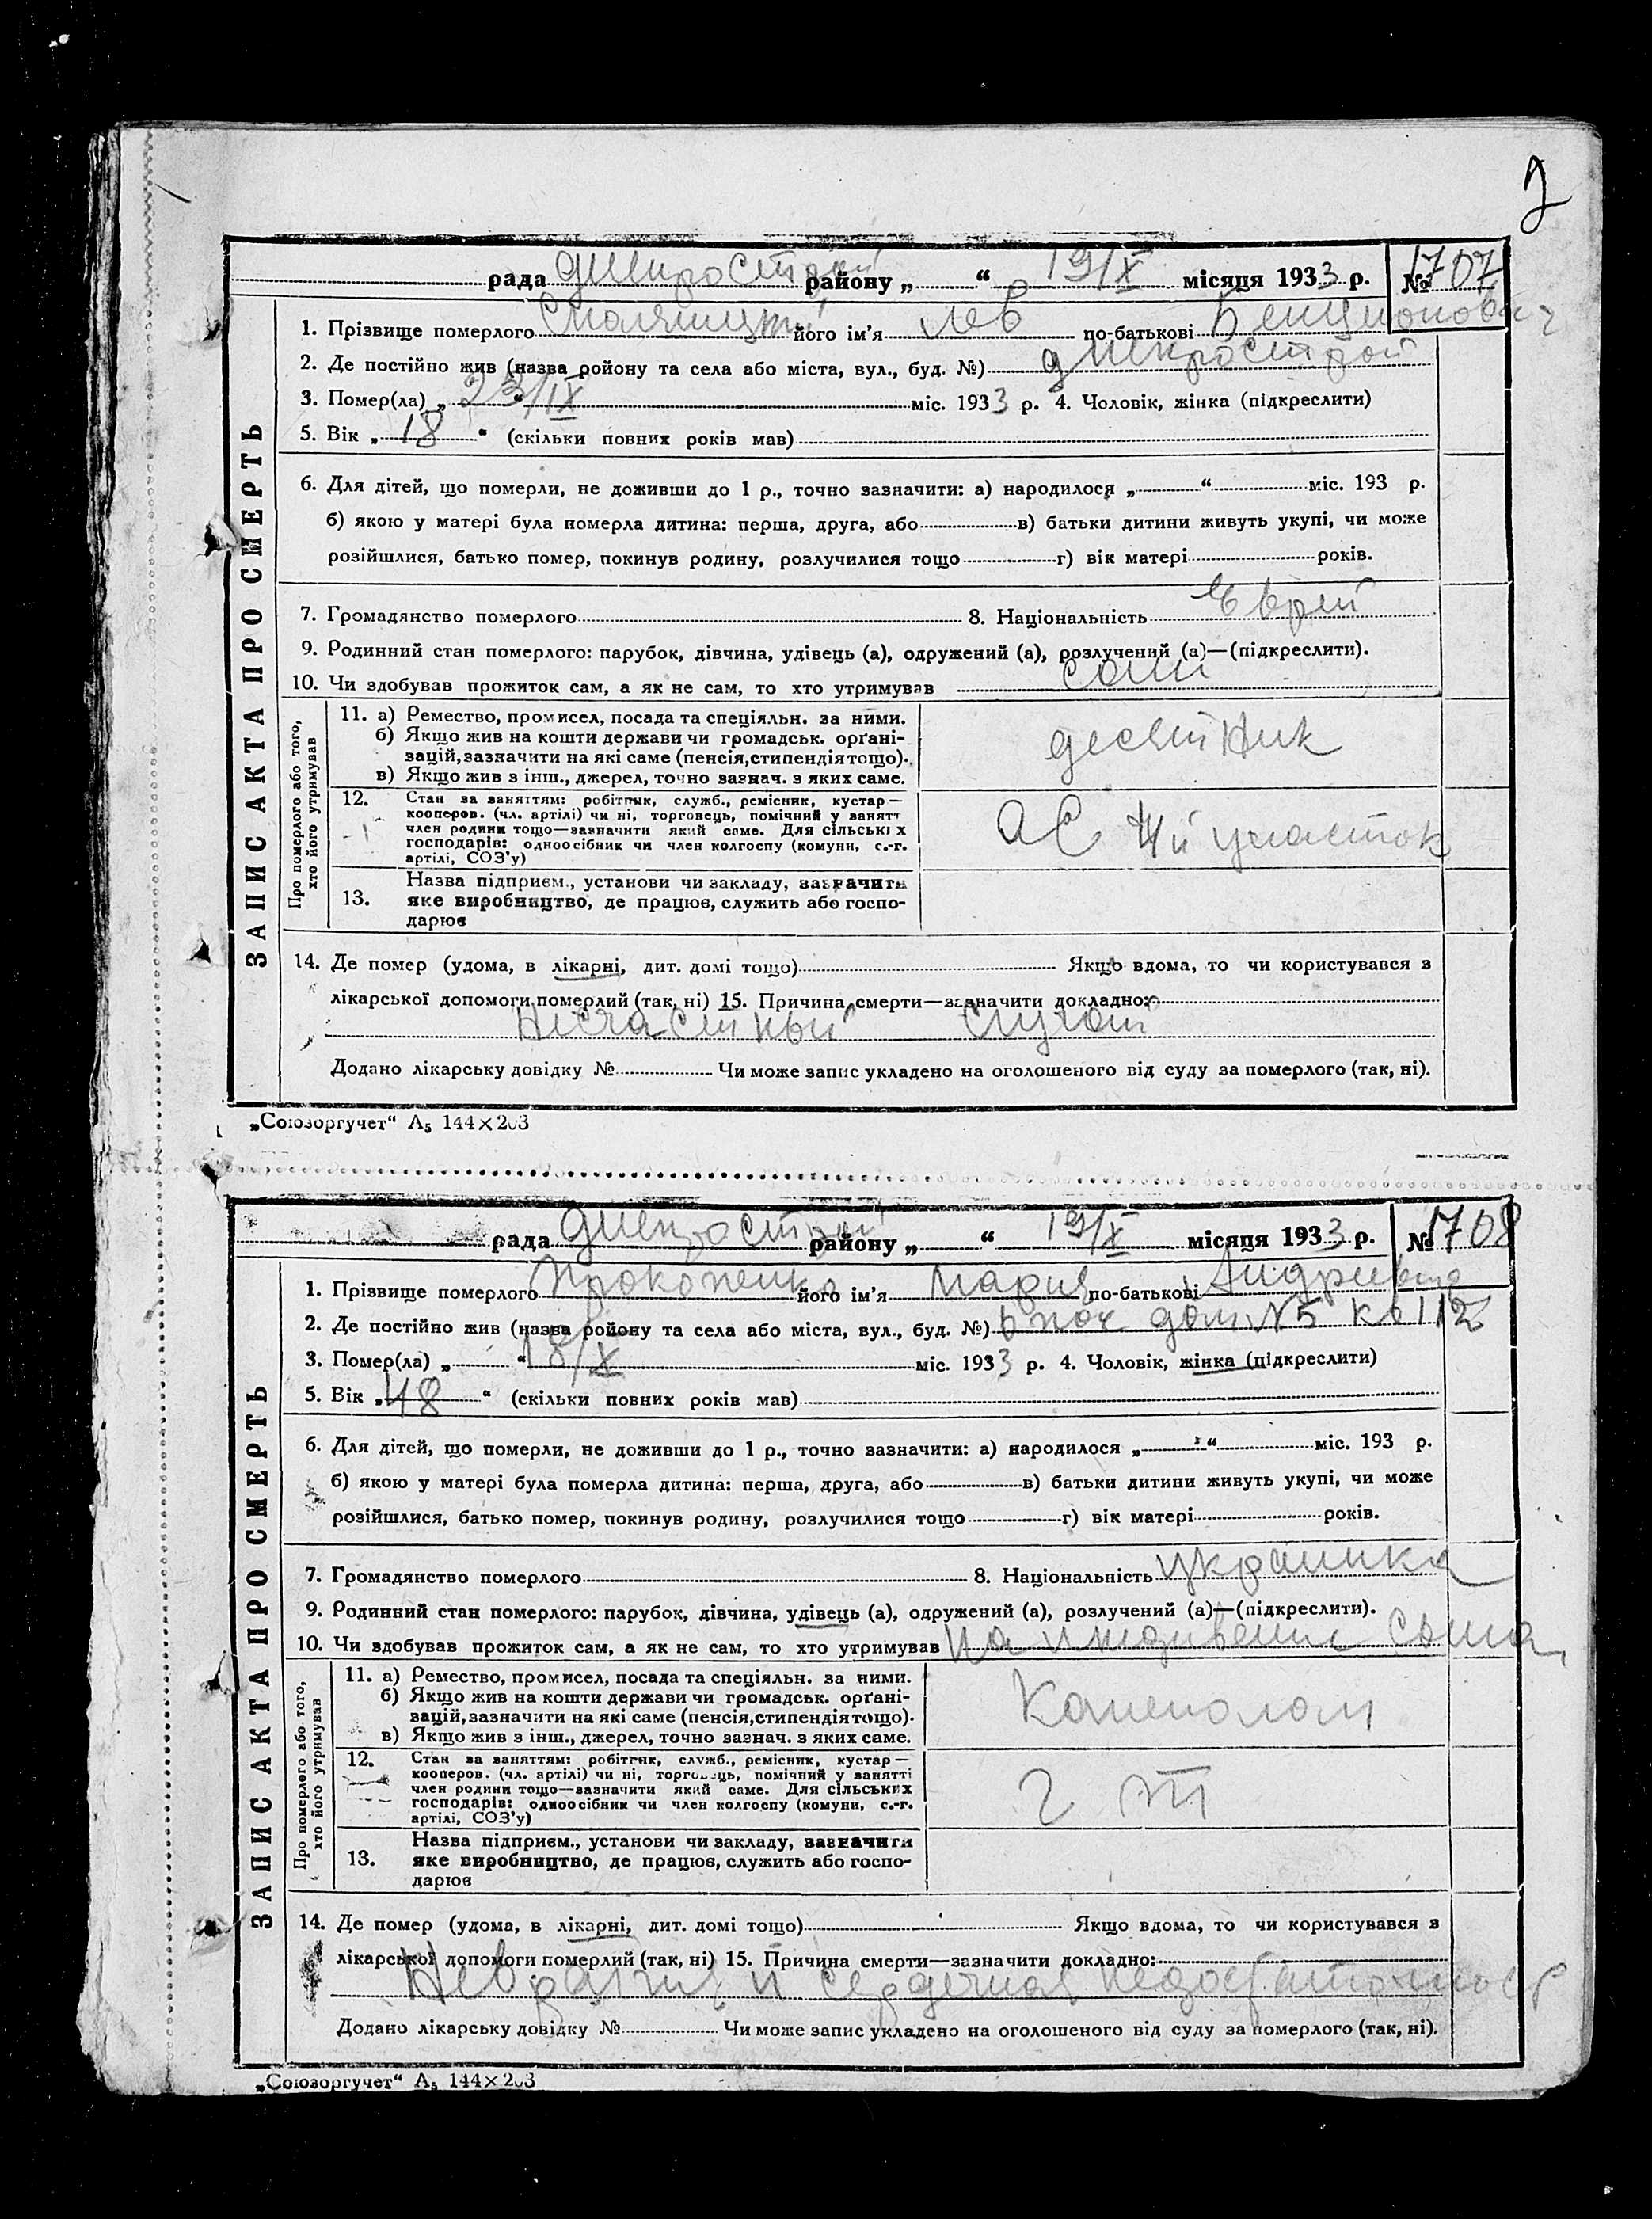 9
рада днепрострой району „ “ 19/X місяця 1933 р. № 1707
1. Прізвище померлого його ім'я Лев по-батькові Бенционович
2. Де постійно жив (назва ройону та села або міста, вул., буд. №) днепрострой
3. Помер(ла) „23/IX“ міс. 1933 р. 4. Чоловік, жінка (підкреслити)
5. Вік „18“ (скільки повних років мав)
6. Для дітей, що померли, не доживши до 1 р., точно зазначити: а) народилося „ “ міс. 193 р.
б) якою у матері була померла дитина: перша, друга, або в) батьки дитини живуть укупі, чи може
розійшлися, батько помер, покинув родину, розлучилися тощо г) вік матері років.
7. Громадянство померлого 8. Національність Еврей
9. Родинний стан померлого: парубок, дівчина, удівець (а), одружений (а), розлучений (а)—(підкреслити).
10. Чи здобував прожиток сам, а як не сам, то хто утримував сам
ЗАПИС АКТА ПРО СМЕРТЬ
Про померлого або того, хто його утримував
11. а) Ремество, промисел, посада та спеціяльн. за ними.
б) Якщо жив на кошти держави чи громадськ. орґані-
зацій, зазначити на які саме (пенсія, стипендія тощо).
в) Якщо жив з інш., джерел, точно зазнач. з яких саме.
десятник
12. Стан за заняттям: робітник, служб., ремісник, кустар—
кооперов. (чл. артілі) чи ні, торговець, помічний у занятт
член родини тощо—зазначити який саме. Для сільських
господарів: одноосібник чи член колгоспу (комуни, с.-г.
артілі, СОЗ'у)
АС 4й участок
13. Назва підприєм., установи чи закладу, зазначити
яке виробництво, де працює, служить або госпо-
дарює
14. Де помер (удома, в лікарні, дит. домі тощо) Якщо вдома, то чи користувався з
лікарської допомоги померлий (так, ні) 15. Причина смерти—зазначити докладно:
Несчастный случай
Додано лікарську довідку № Чи може запис укладено на оголошеного від суду за померлого (так, ні).
„Союзоргучет“ А5 144×203
рада днепрострой району „ “ 19/X місяця 1933 р. № 1708
1. Прізвище померлого Прокопенко його ім'я Мария по-батькові Андреевна
2. Де постійно жив (назва ройону та села або міста, вул., буд. №) 6 пос дом N5 кв 112
3. Помер(ла) „ “ 18/X міс. 1933 р. 4. Чоловік, жінка (підкреслити)
5. Вік „48“ (скільки повних років мав)
6. Для дітей, що померли, не доживши до 1 р., точно зазначити: а) народилося „ “ міс. 193 р.
б) якою у матері була померла дитина: перша, друга, або в) батьки дитини живуть укупі, чи може
розійшлися, батько помер, покинув родину, розлучилися тощо г) вік матері років.
7. Громадянство померлого 8. Національність украинка
9. Родинний стан померлого: парубок, дівчина, удівець (а), одружений (а), розлучений (а)—(підкреслити).
10. Чи здобував прожиток сам, а як не сам, то хто утримував на иждивении сына
ЗАПИС АКТА ПРО СМЕРТЬ
Про померлого або того, хто його утримував
11. а) Ремество, промисел, посада та спеціяльн. за ними.
б) Якщо жив на кошти держави чи громадськ. орґані-
зацій, зазначити на які саме (пенсія, стипендія тощо).
в) Якщо жив з інш., джерел, точно зазнач. з яких саме.
Каменолом
12. Стан за заняттям: робітник, служб., ремісник, кустар—
кооперов. (чл. артілі) чи ні, торговець, помічний у занятті
член родини тощо—зазначити який саме. Для сільських
господарів: одноосібник чи член колгоспу (комуни, с.-г.
артілі, СОЗ'у)
13. Назва підприєм., установи чи закладу, зазначити
яке виробництво, де працює, служить або госпо-
дарює
14. Де помер (удома, в лікарні, дит. домі тощо) Якщо вдома, то чи користувався з
лікарської допомоги померлий (так, ні) 15. Причина смерти—зазначити докладно:
и сердечная недостаточность
Додано лікарську довідку № Чи може запис укладено на оголошеного від суду за померлого (так, ні).
„Союзоргучет“ А5 144×203